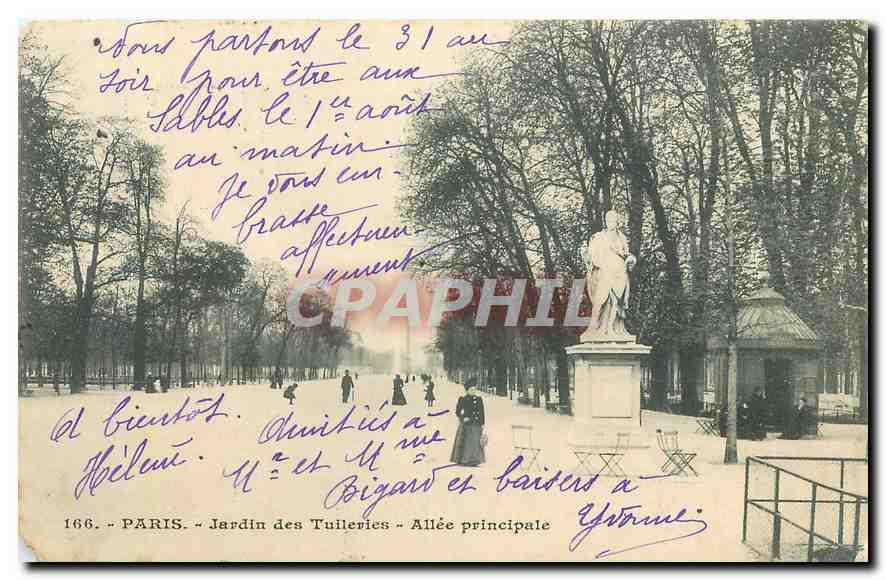 Vous partons le 31 au
soir pour être aux
Sables le 1er août
au matin.
je vous em-
brasse
affectueu-
sement.
CPAPHIL
à bientôt.
Hélène.
Amitiés à
Mr et Mme
Bigard et baisers à
Yvonne.
166. - PARIS. - Jardin des Tuileries - Allée principale